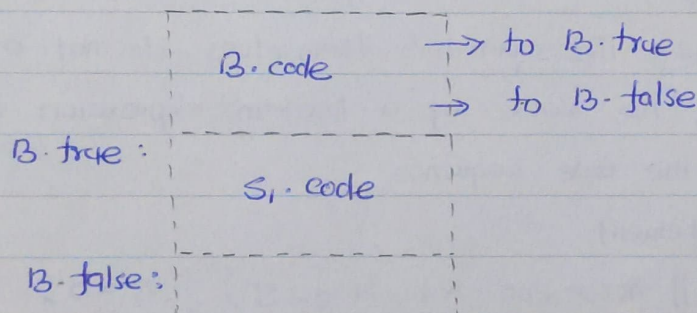 B.code → to B.true
→ to B-false
B.true :
S₁.code
B-false :